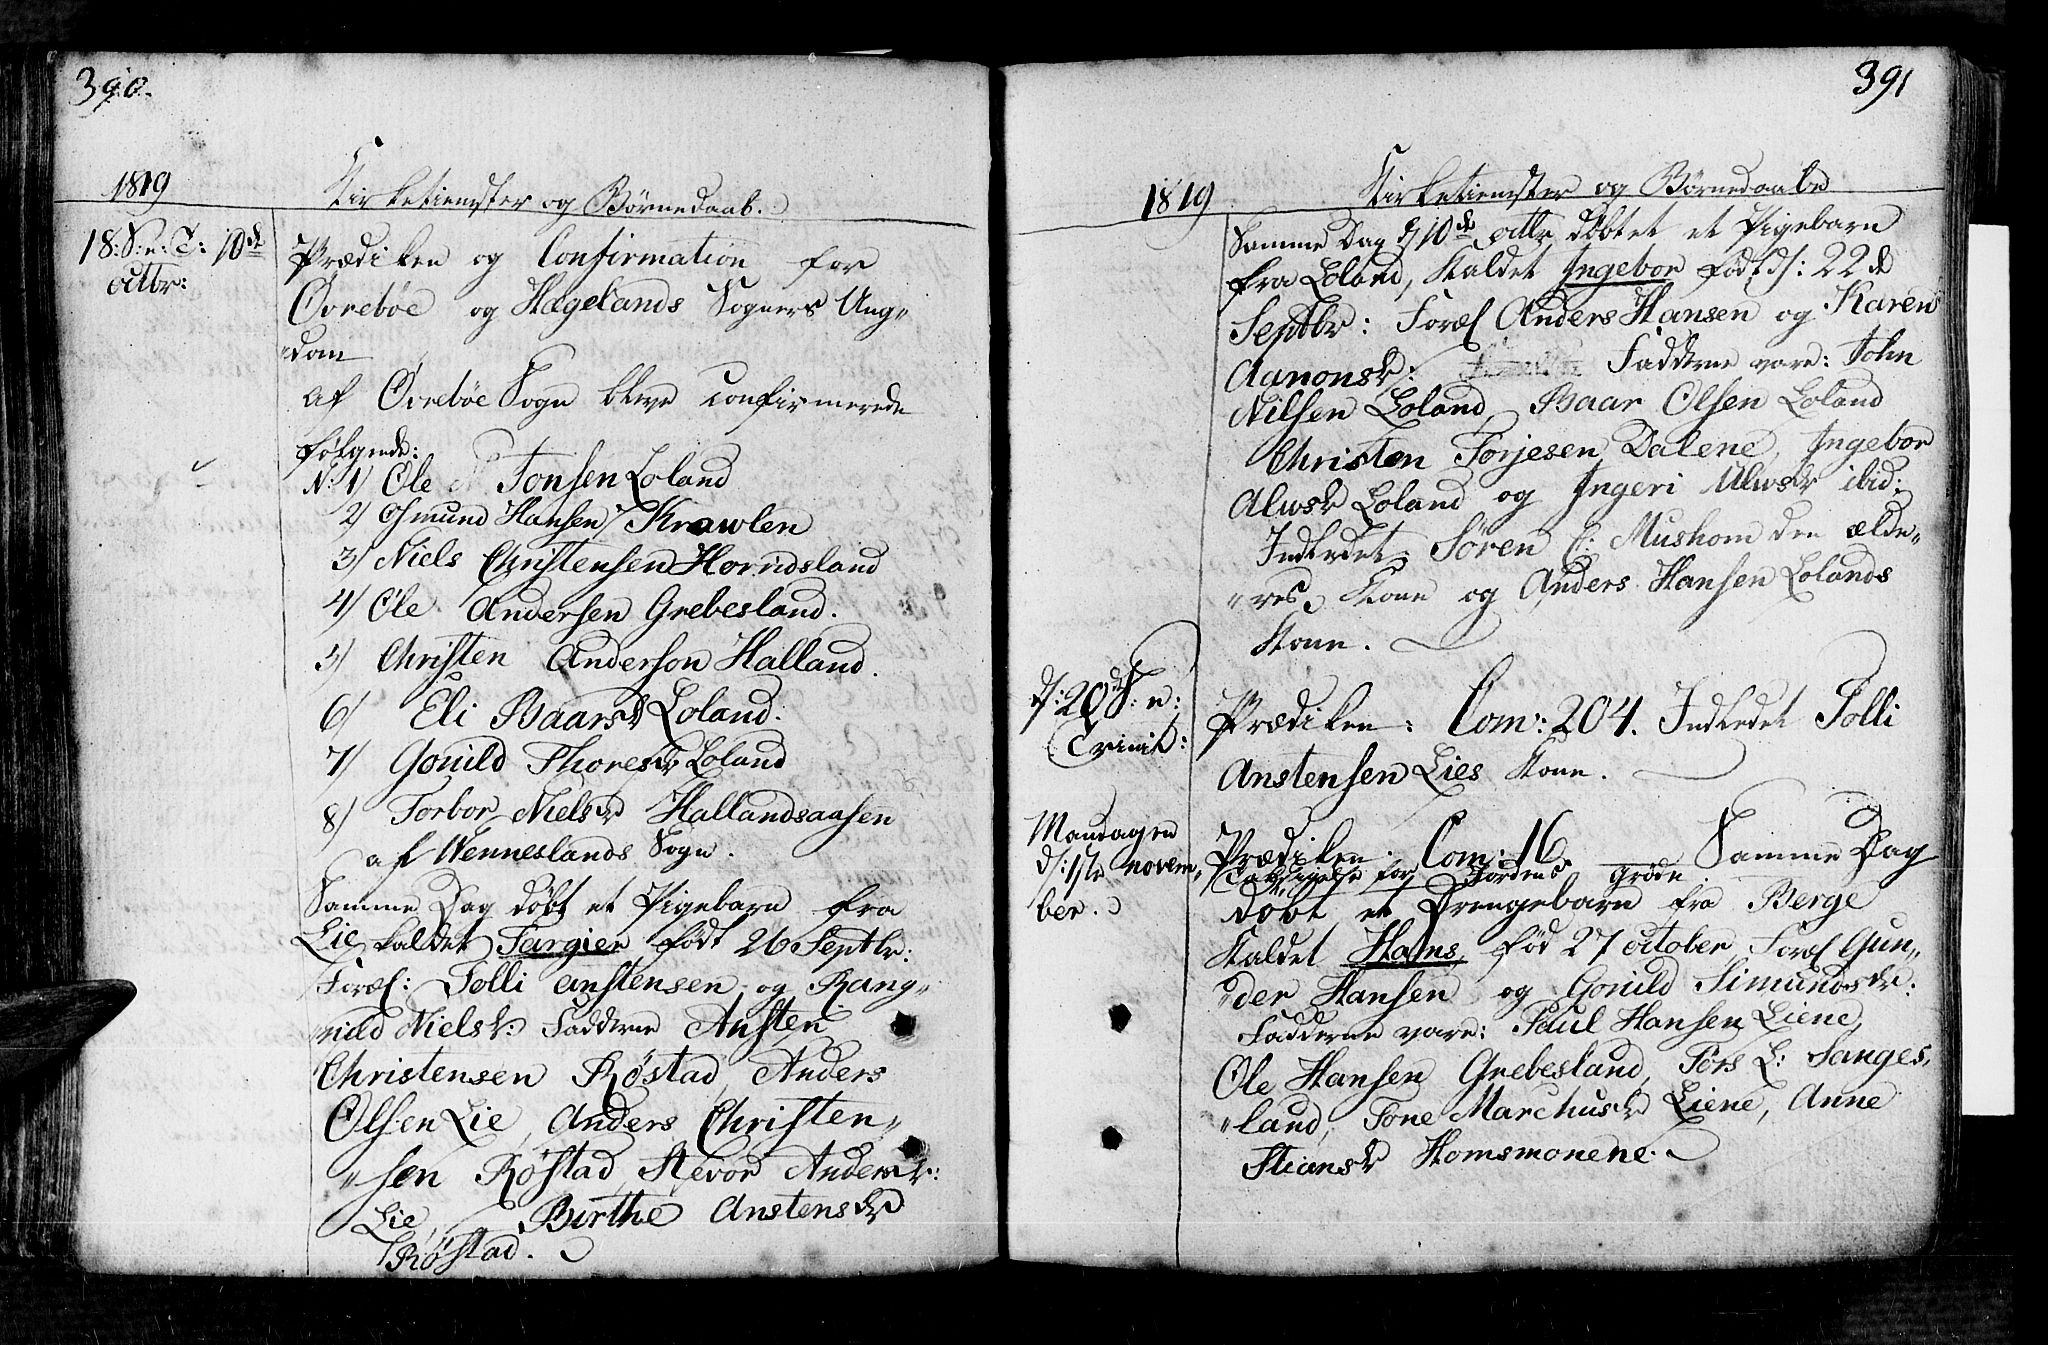 390.
1819
Kirketienester og Börnedaab.
18: S: n: T: 10de
octbr:
Prædiken og Confirmation for
Øvrebøe og Hægelands Sogners Ung„
„dom
af Øvrebøe Sogn bleve confirmerede
følgende:
N: 1) Ole Tonsen Loland
2) Osmund Hansen Krawlen
3) Niels Christensen Horridsland
4) Ole Andersen Grebesland.
5) Christen Anderson Halland.
6) Eli Baarsdr Loland.
7) Gonild Thoresdr Loland
8) Torbor Nielsdr Hallandsaasen
af Wenneslands Sogn.
Samme Dag døbt et Pigebarn fra
Lie kaldet Targier født 26 Septbr:
Foræl: Tolli anstensen og Rang„
„nild Nielsdr: Fadderne Ansten
Christensen Røstad, Anders
Olsen Lie, Anders Christen„
„sen Røstad, Stevor Andersdr:
Lie, Birthe Anstensdr
Røstad.
391
1819
Kirketienester og Börnedaabe
Samme Dag d 10de octbr døbtet et Pigebarn
fra Loland, kaldet Ingebor født d: 22de
Septbr: Foræl Anders Hansen og Karen
Aanonsdr: Fadderne vare: John
Nilsen Loland, Baar Olsen Loland
Christen Torjesen Dalene, Ingebor
Alwsdr Loland og Ingeri Ulwsdr ibid:
Indledet Søren C: Mushom den ælde„
„res Kone og Anders Hansen Lolands
Kone.
d: 20de S: n:
Trinit:
Prædiken: Com: 204. Indledet Tolli
Anstensen Lies Kone.
Mandagen
d: 1ste novem„
ber.
Prædiken. Com: 16. Samme Dag
Taksigelse for Jordens grøde.
døbt et Drengebarn fra Berge
kaldet Hans, fød 27 october, Foræl Gun„
„der Hansen og Gonild Simundsdr:
Fadderne vare: Paul Hansen Liene,
Ole Hansen Grebesland, Törs L: Sanges„
„land, Tone Marchusdr Liene, Anne
Stiansdr Homsmonene.